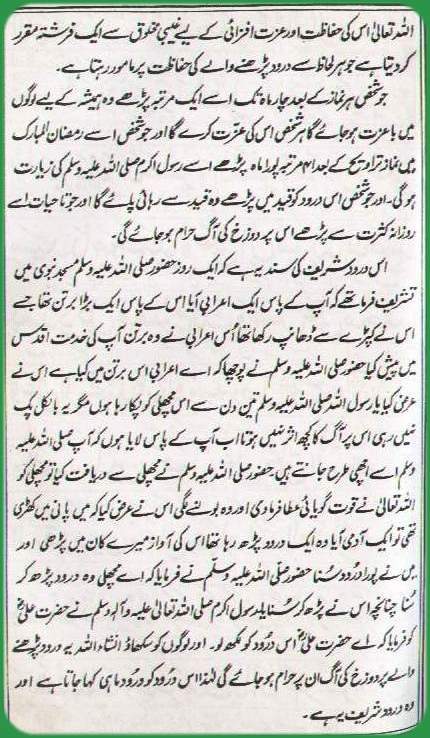 اللہ تعالیٰ اس کی حفاظت اور عزت افزائی کے لیے غیبی مخلوق سے ایک فرشتہ مقرر
کر دیتا ہے جو ہر لحاظ سے درود پڑھنے والے کی حفاظت پر مامور رہتا ہے۔
جو شخص ہر نماز کے بعد چار ماہ تک اسے ایک مرتبہ پڑھے وہ ہمیشہ کے لیے لوگوں
میں باعزت ہو جائے گا ہر شخص اس کی عزت کرے گا اور جو شخص اسے رمضان المبارک
میں نماز تراویح کے بعد ۴۱ مرتبہ پورا ماہ پڑھے اسے رسول اکرم صلی اللہ علیہ وسلم کی زیارت
ہوگی۔ اور جو شخص اس درود کو قید میں پڑھے وہ قید سے رہائی پائے گا اور جو تا حیات اسے
روزانہ کثرت سے پڑھے اس پر دوزخ کی آگ حرام ہو جائے گی۔
اس درود شریف کی سند یہ ہے کہ ایک روز حضور صلی اللہ علیہ وسلم مسجد نبوی میں
تشریف فرما تھے کہ آپ کے پاس ایک اعرابی آیا اس کے پاس ایک بڑا برتن تھا جسے
اس نے کپڑے سے ڈھانپ رکھا تھا اُس اعرابی نے وہ برتن آپ کی خدمت اقدس
میں پیش کیا حضور صلی اللہ علیہ وسلم نے پوچھا کہ اے اعرابی اس برتن میں کیا ہے اس نے
عرض کیا یا رسول اللہ صلی اللہ علیہ وسلم تین دن سے اس مچھلی کو پکا رہا ہوں مگر یہ بالکل پک
نہیں رہی اس پر آگ کا کچھ اثر نہیں ہوتا اب آپ کے پاس لایا ہوں کہ آپ صلی اللہ علیہ
وسلم اسے اچھی طرح جانتے ہیں۔ حضور صلی اللہ علیہ وسلم نے مچھلی سے دریافت کیا تو مچھلی کو
اللہ تعالیٰ نے قوت گویائی عطا فرما دی اور وہ بولنے لگی اس نے عرض کیا کہ میں پانی میں کھڑی
تھی تو ایک آدمی آیا وہ ایک درود پڑھ رہا تھا اس کی آواز میرے کان میں پڑھی اور
میں نے پورا درُود سُنا حضور صلی اللہ علیہ وسلّم نے فرمایا کہ اے مچھلی وہ درود پڑھ کر
سُنا چنانچہ اس نے پڑھ کر سُنایا۔ رسول اکرم صلی اللہ تعالیٰ علیہ وآلہٖ وسلم نے حضرت علیؓ
کو فرمایا کہ اے حضرت علیؓ اس درُود کو لکھ لو۔ اور لوگوں کو سکھاؤ انشاء اللہ یہ درود پڑھنے
والے پر دوزخ کی آگ ان پر حرام ہو جائے گی لہٰذا اس درُود کو درُودِ ماہی کہا جاتا ہے اور
وہ درود شریف یہ ہے۔